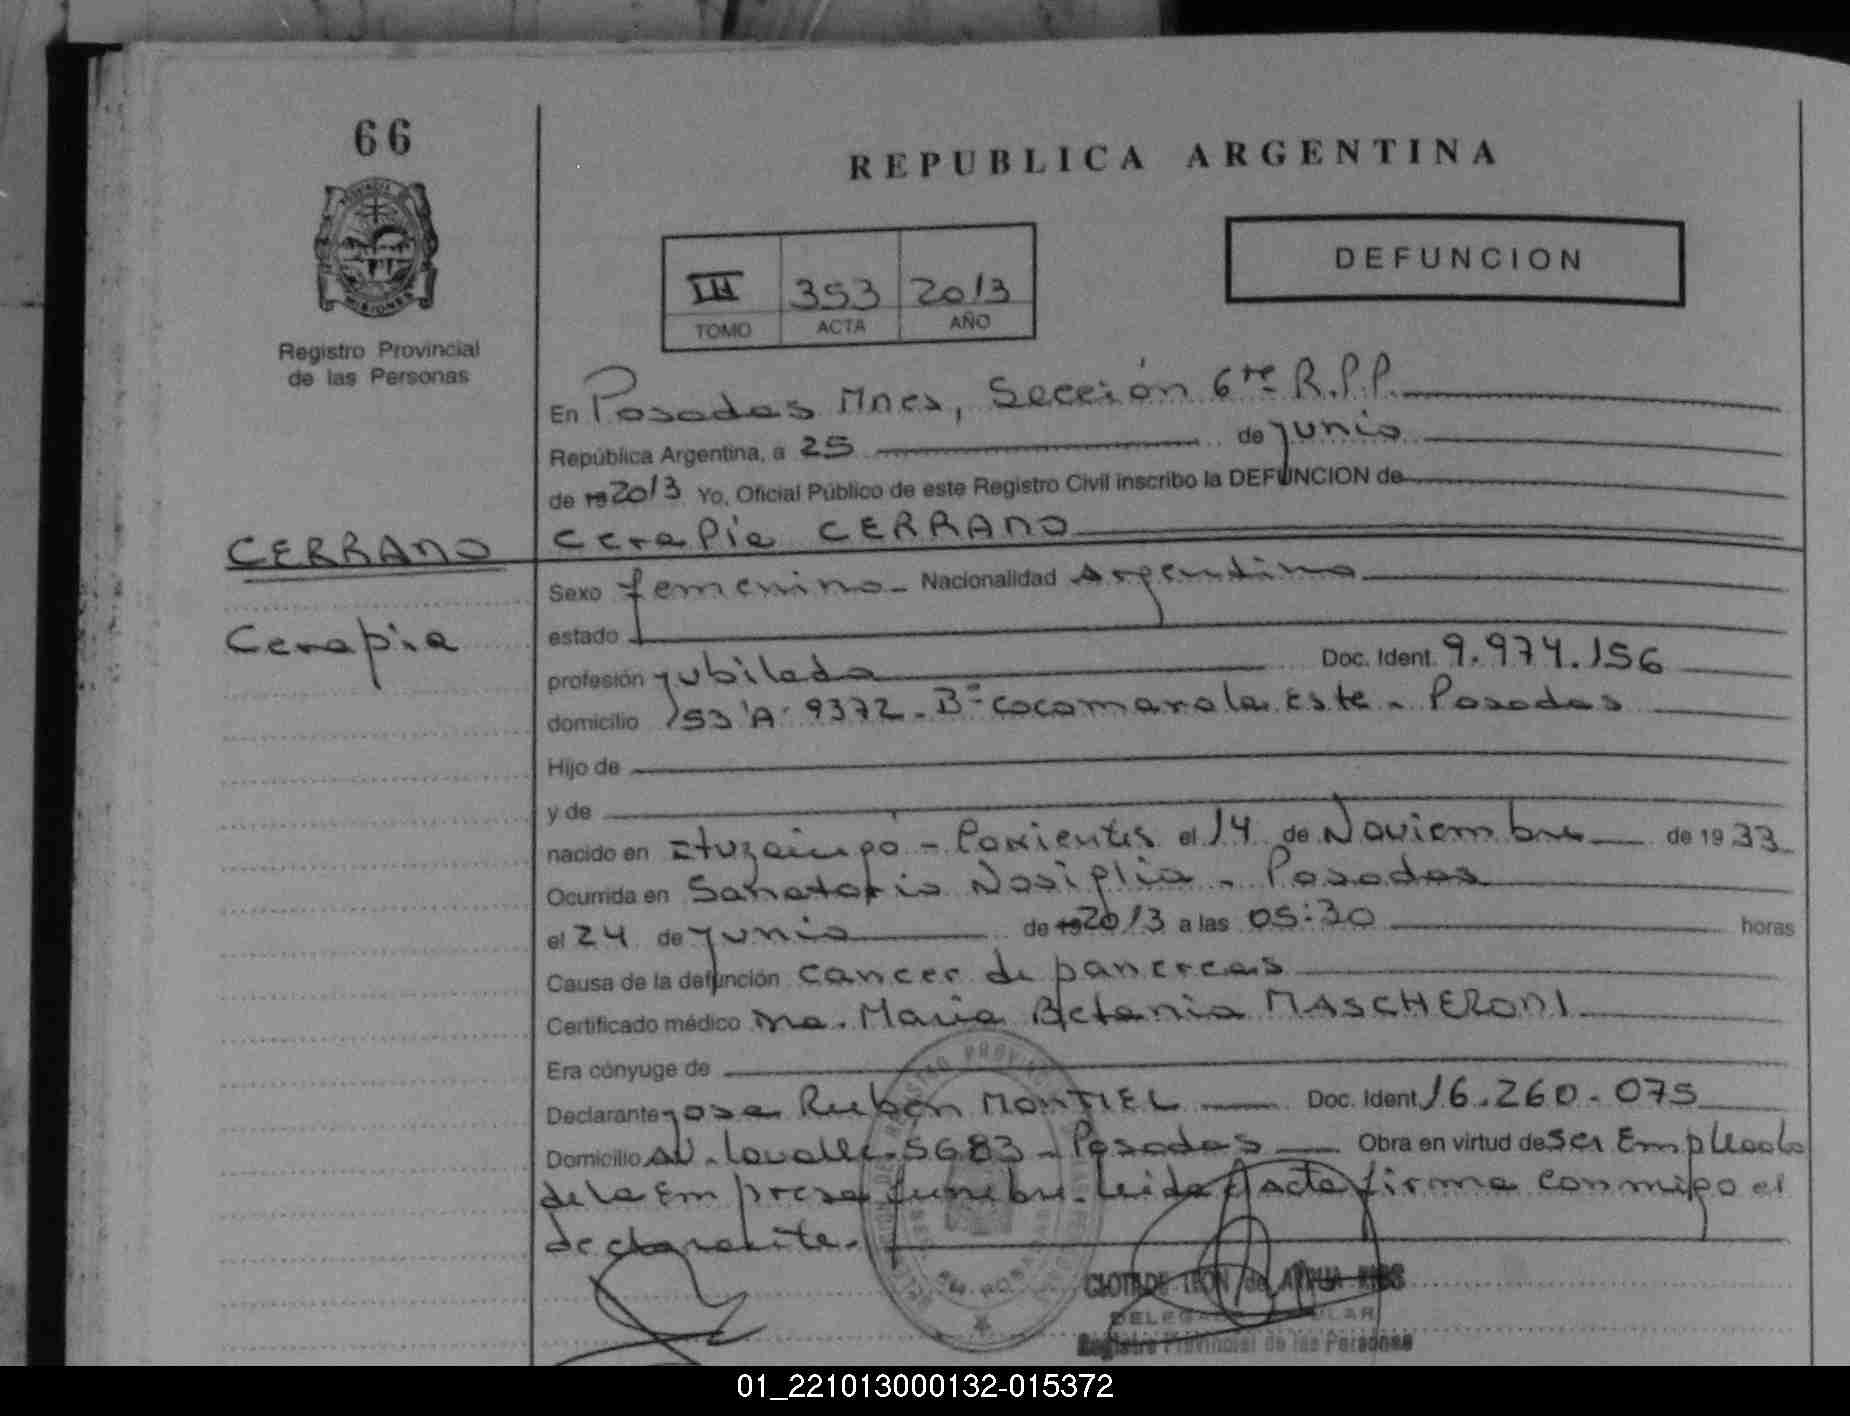 66
REPUBLICA ARGENTINA
DEFUNCION
III 353 2013
TOMO ACTA AÑO
MISIONES
Registro Provincial
de las Personas
En Posadas Mnes, Sección 6ta R.P.P.
República Argentina, a 25 de junio
de 19 2013 Yo, Oficial Público de este Registro Civil inscribo la DEFUNCION de
CERRANO
Cerapia CERRANO
Cerapia
Sexo femenino - Nacionalidad Argentina
estado
profesión jubilada Doc. Ident. 9.974.156
domicilio 153 "A" 9372 - Bº Cocomarola Este - Posadas
Hijo de
y de
nacido en Ituzaingó - Corrientes el 14 de Noviembre de 19 33
Ocurrida en Sanatorio Nosiglia - Posadas
el 24 de junio de 19 2013 a las 05:30 horas
Causa de la defunción cancer de pancreas
Certificado médico Dra. Maria Betania MASCHERONI
Era cónyuge de
Declarante Jose Rubén MONTIEL Doc. Ident. 16.260.075
Domicilio AV. Lavalle 5683 - Posadas Obra en virtud de ser Empleado
de la Empresa fúnebre. Leida el acta firma conmigo el
declarante.
CLOTILDE LEON de
Registro Provincial de las Personas
01_221013000132-015372